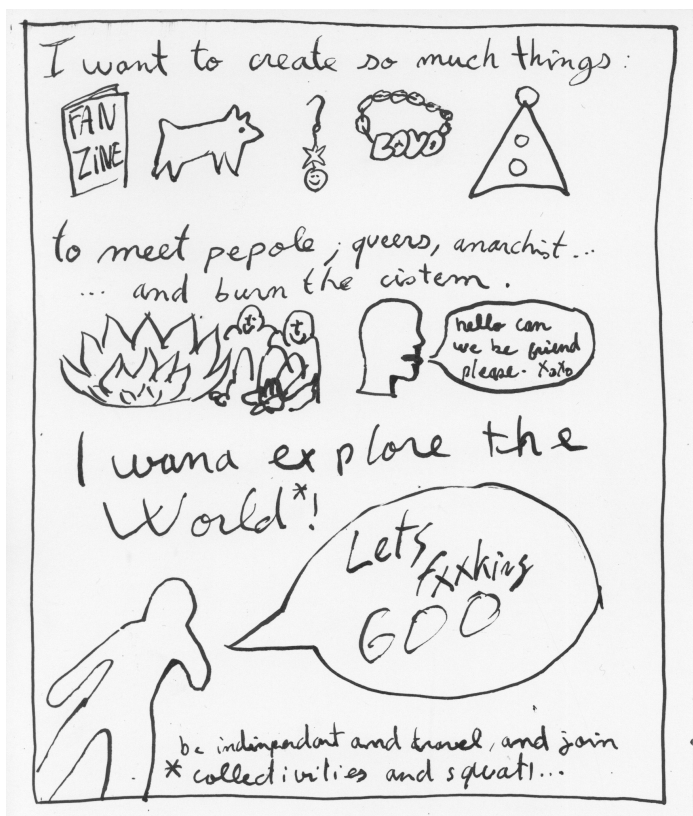 I want to create so much things :
FAN
ZiNE
to meet pepole, queers, anarchist...
... and burn the cistem.
hello can
we be friend
please. xoxo
I wana explore the
World*!
Lets
fxxking
GOO
be indinpendant and travel, and join
* collectivities and squat!...